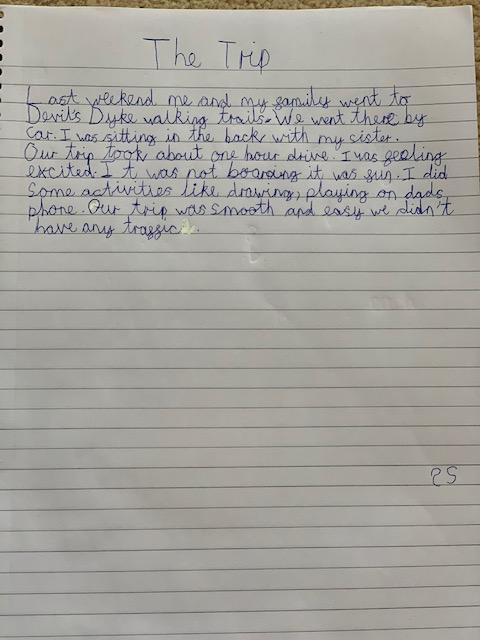 The Trip
Last weekend me and my family went to
Devil's Dyke walking trails. We went there by
car. I was sitting in the back with my sister.
Our trip took about one hour drive. I was feeling
excited. It was not boarding it was fun. I did
some activities like drawing, playing on dads
phone. Our trip was smooth and easy we didn't
have any traffic.